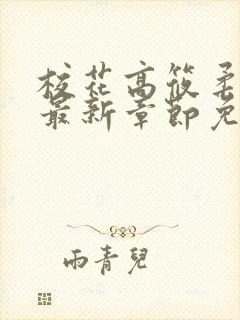 校花高筱柔
最新章節免
雨青兒